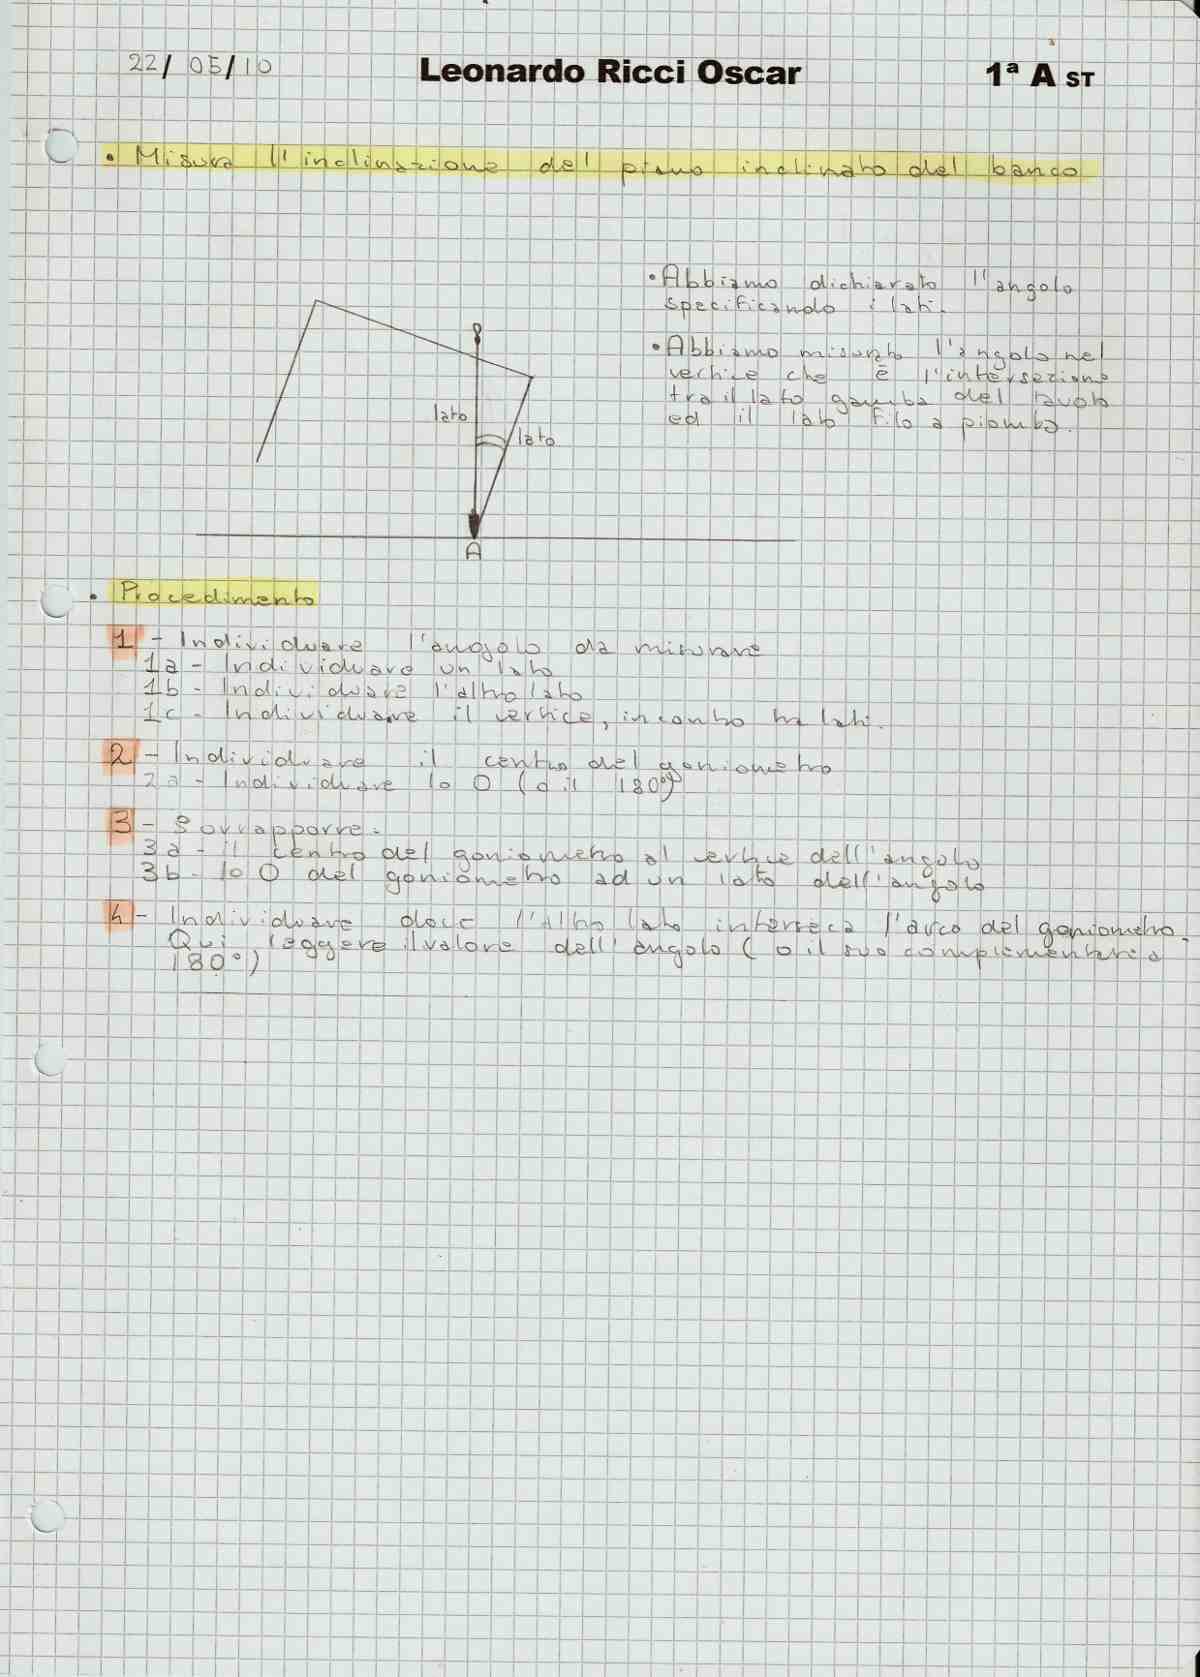 22/05/10
Leonardo Ricci Oscar
1ª A ST
• Misura l'inclinazione del piano inclinato del banco
• Abbiamo dichiarato l'angolo
specificando i lati.
• Abbiamo misurato l'angolo nel
vertice che è l'intersezione
tra il lato gamba del tavolo
ed il lato filo a piombo.
lato
lato
A
• Procedimento
1 - Individuare l'angolo da misurare
1a - Individuare un lato
1b - Individuare l'altro lato
1c - Individuare il vertice, incontro tra lati.
2 - Individuare il centro del goniometro
2a - Individuare lo 0 (o il 180°)
3 - Sovrapporre.
3a - il centro del goniometro al vertice dell'angolo
3b - lo 0 del goniometro ad un lato dell'angolo
4 - Individuare dove l'altro lato interseca l'arco del goniometro.
Qui leggere il valore dell'angolo (o il suo complementare a
180°)